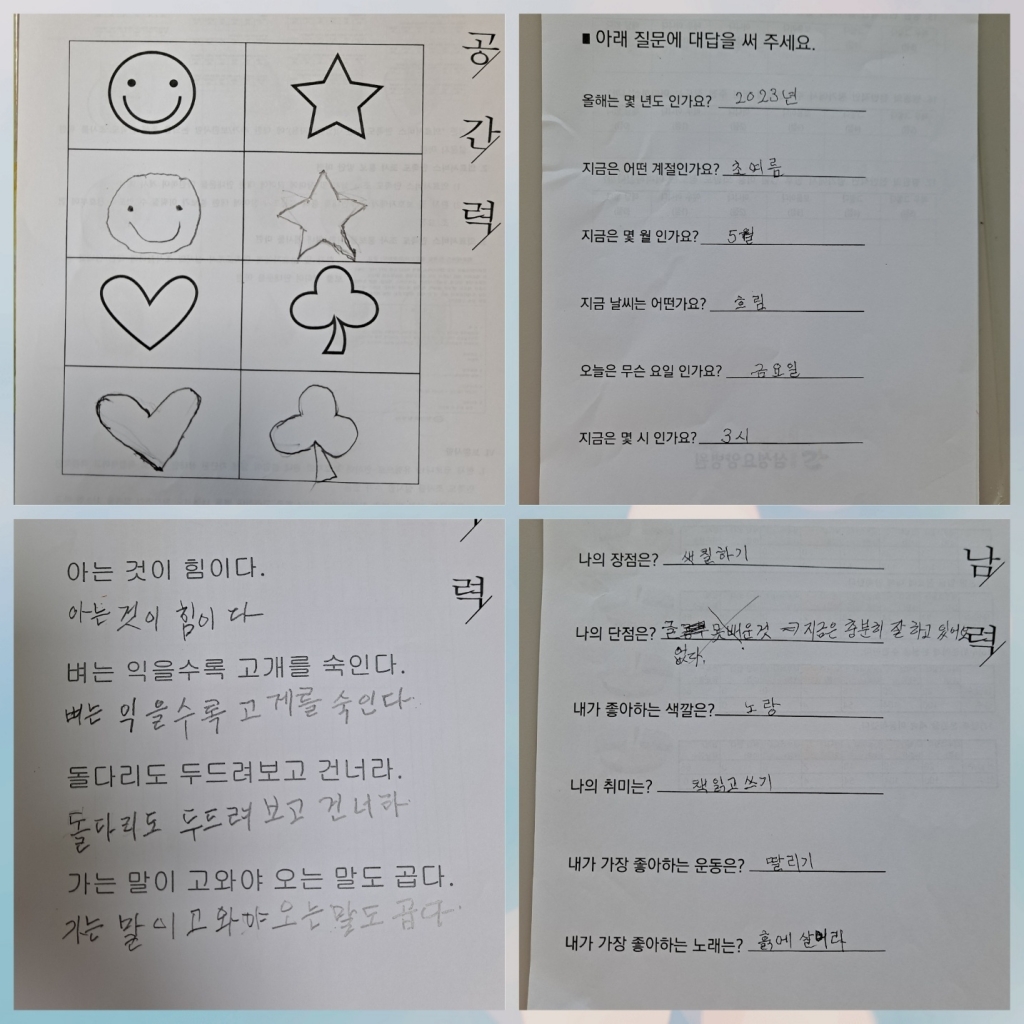 공
간
력
■ 아래 질문에 대답을 써 주세요.
올해는 몇 년도 인가요? 2023년
지금은 어떤 계절인가요? 초여름
지금은 몇 월 인가요? 5월
지금 날씨는 어떤가요? 흐림
오늘은 무슨 요일 인가요? 금요일
지금은 몇 시 인가요? 3시
력
아는 것이 힘이다.
아는 것이 힘이 다
벼는 익을수록 고개를 숙인다.
벼는 익을수록 고게를 숙인다
돌다리도 두드려보고 건너라.
돌다리도 두드려 보고 건너하
가는 말이 고와야 오는 말도 곱다.
가는 말이 고와야 오는 말도 곱다.
남
력
나의 장점은? 색칠하기
나의 단점은? 글 못 배운것 → 지금은 충분히 잘 하고 있어요
없다.
내가 좋아하는 색깔은? 노랑
나의 취미는? 책 읽고 쓰기
내가 가장 좋아하는 운동은? 딸리기
내가 가장 좋아하는 노래는? 흙에 살어라